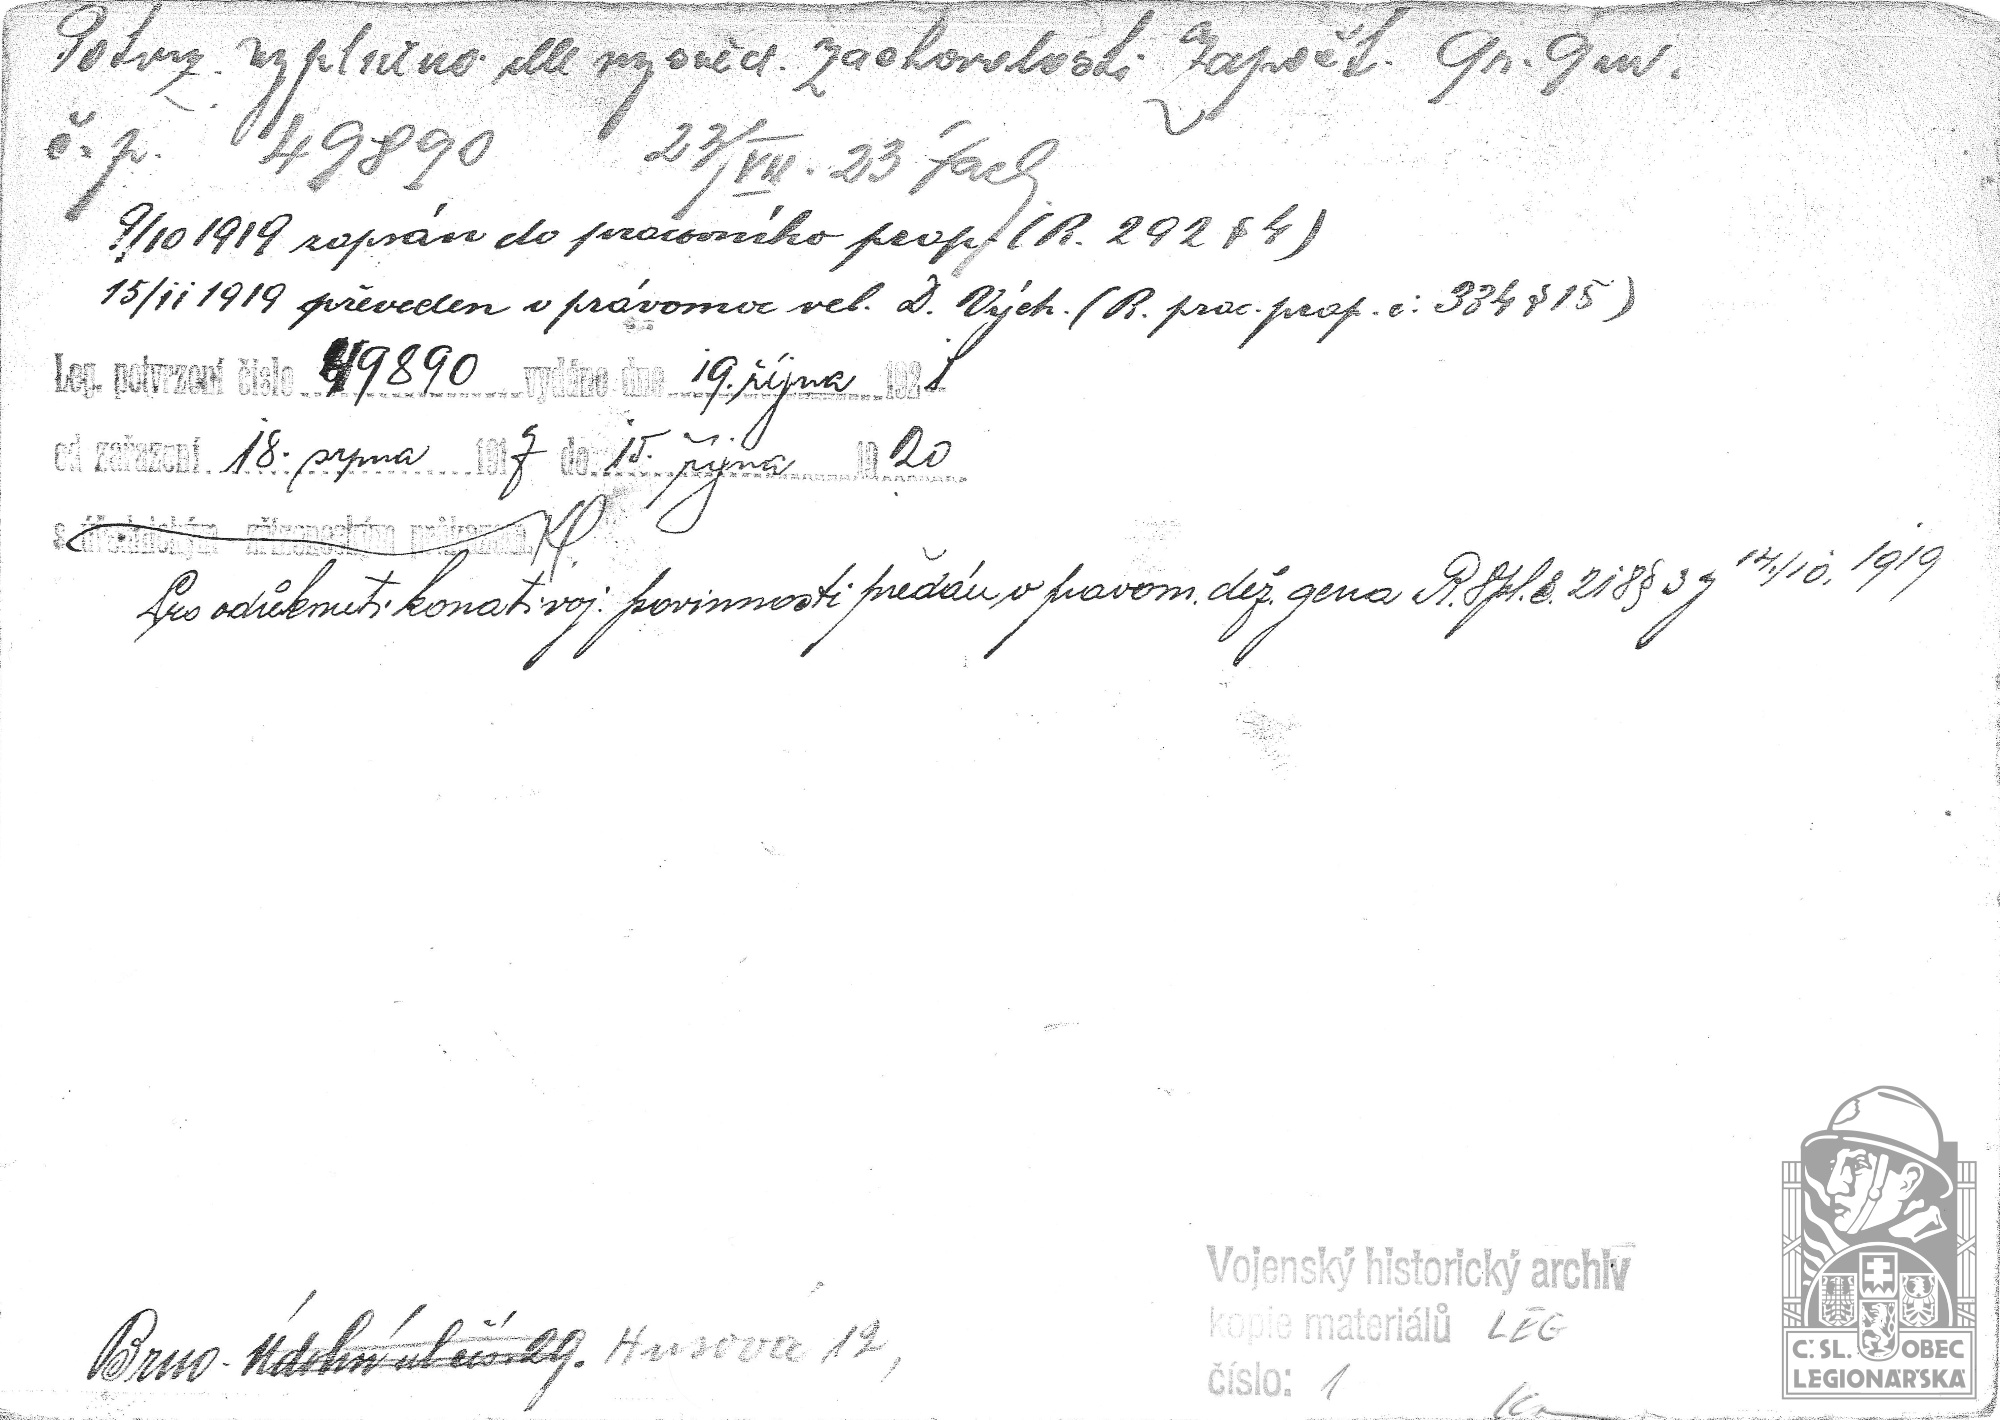 Potvrz. vyplněno dle vysvěd. zachovalosti a započt.
č. p. 49890 23/VII. 23
9/10 1919 zapsán do pracovního prap. (R. 292 § 4)
15/ii 1919 převeden v právomoc vel. D. Vých. (R. prac. prap. č: 334 § 15)
Leg. potvrzení číslo 49890 vydáno dne 19. října 1921
od zařazení 18. srpna 1917 do 15. října 1920
s úředním
Pro odřeknutí konati voj. povinnosti předán v pravom. děž. gena R. Spl. č. 218 § 3 z 14./10. 1919
Brno - Údolní ul čís. 29. Husova 12,
Vojenský historický archiv
kopie materiálů LEG
číslo: 1
ČSL. OBEC
LEGIONÁŘSKÁ